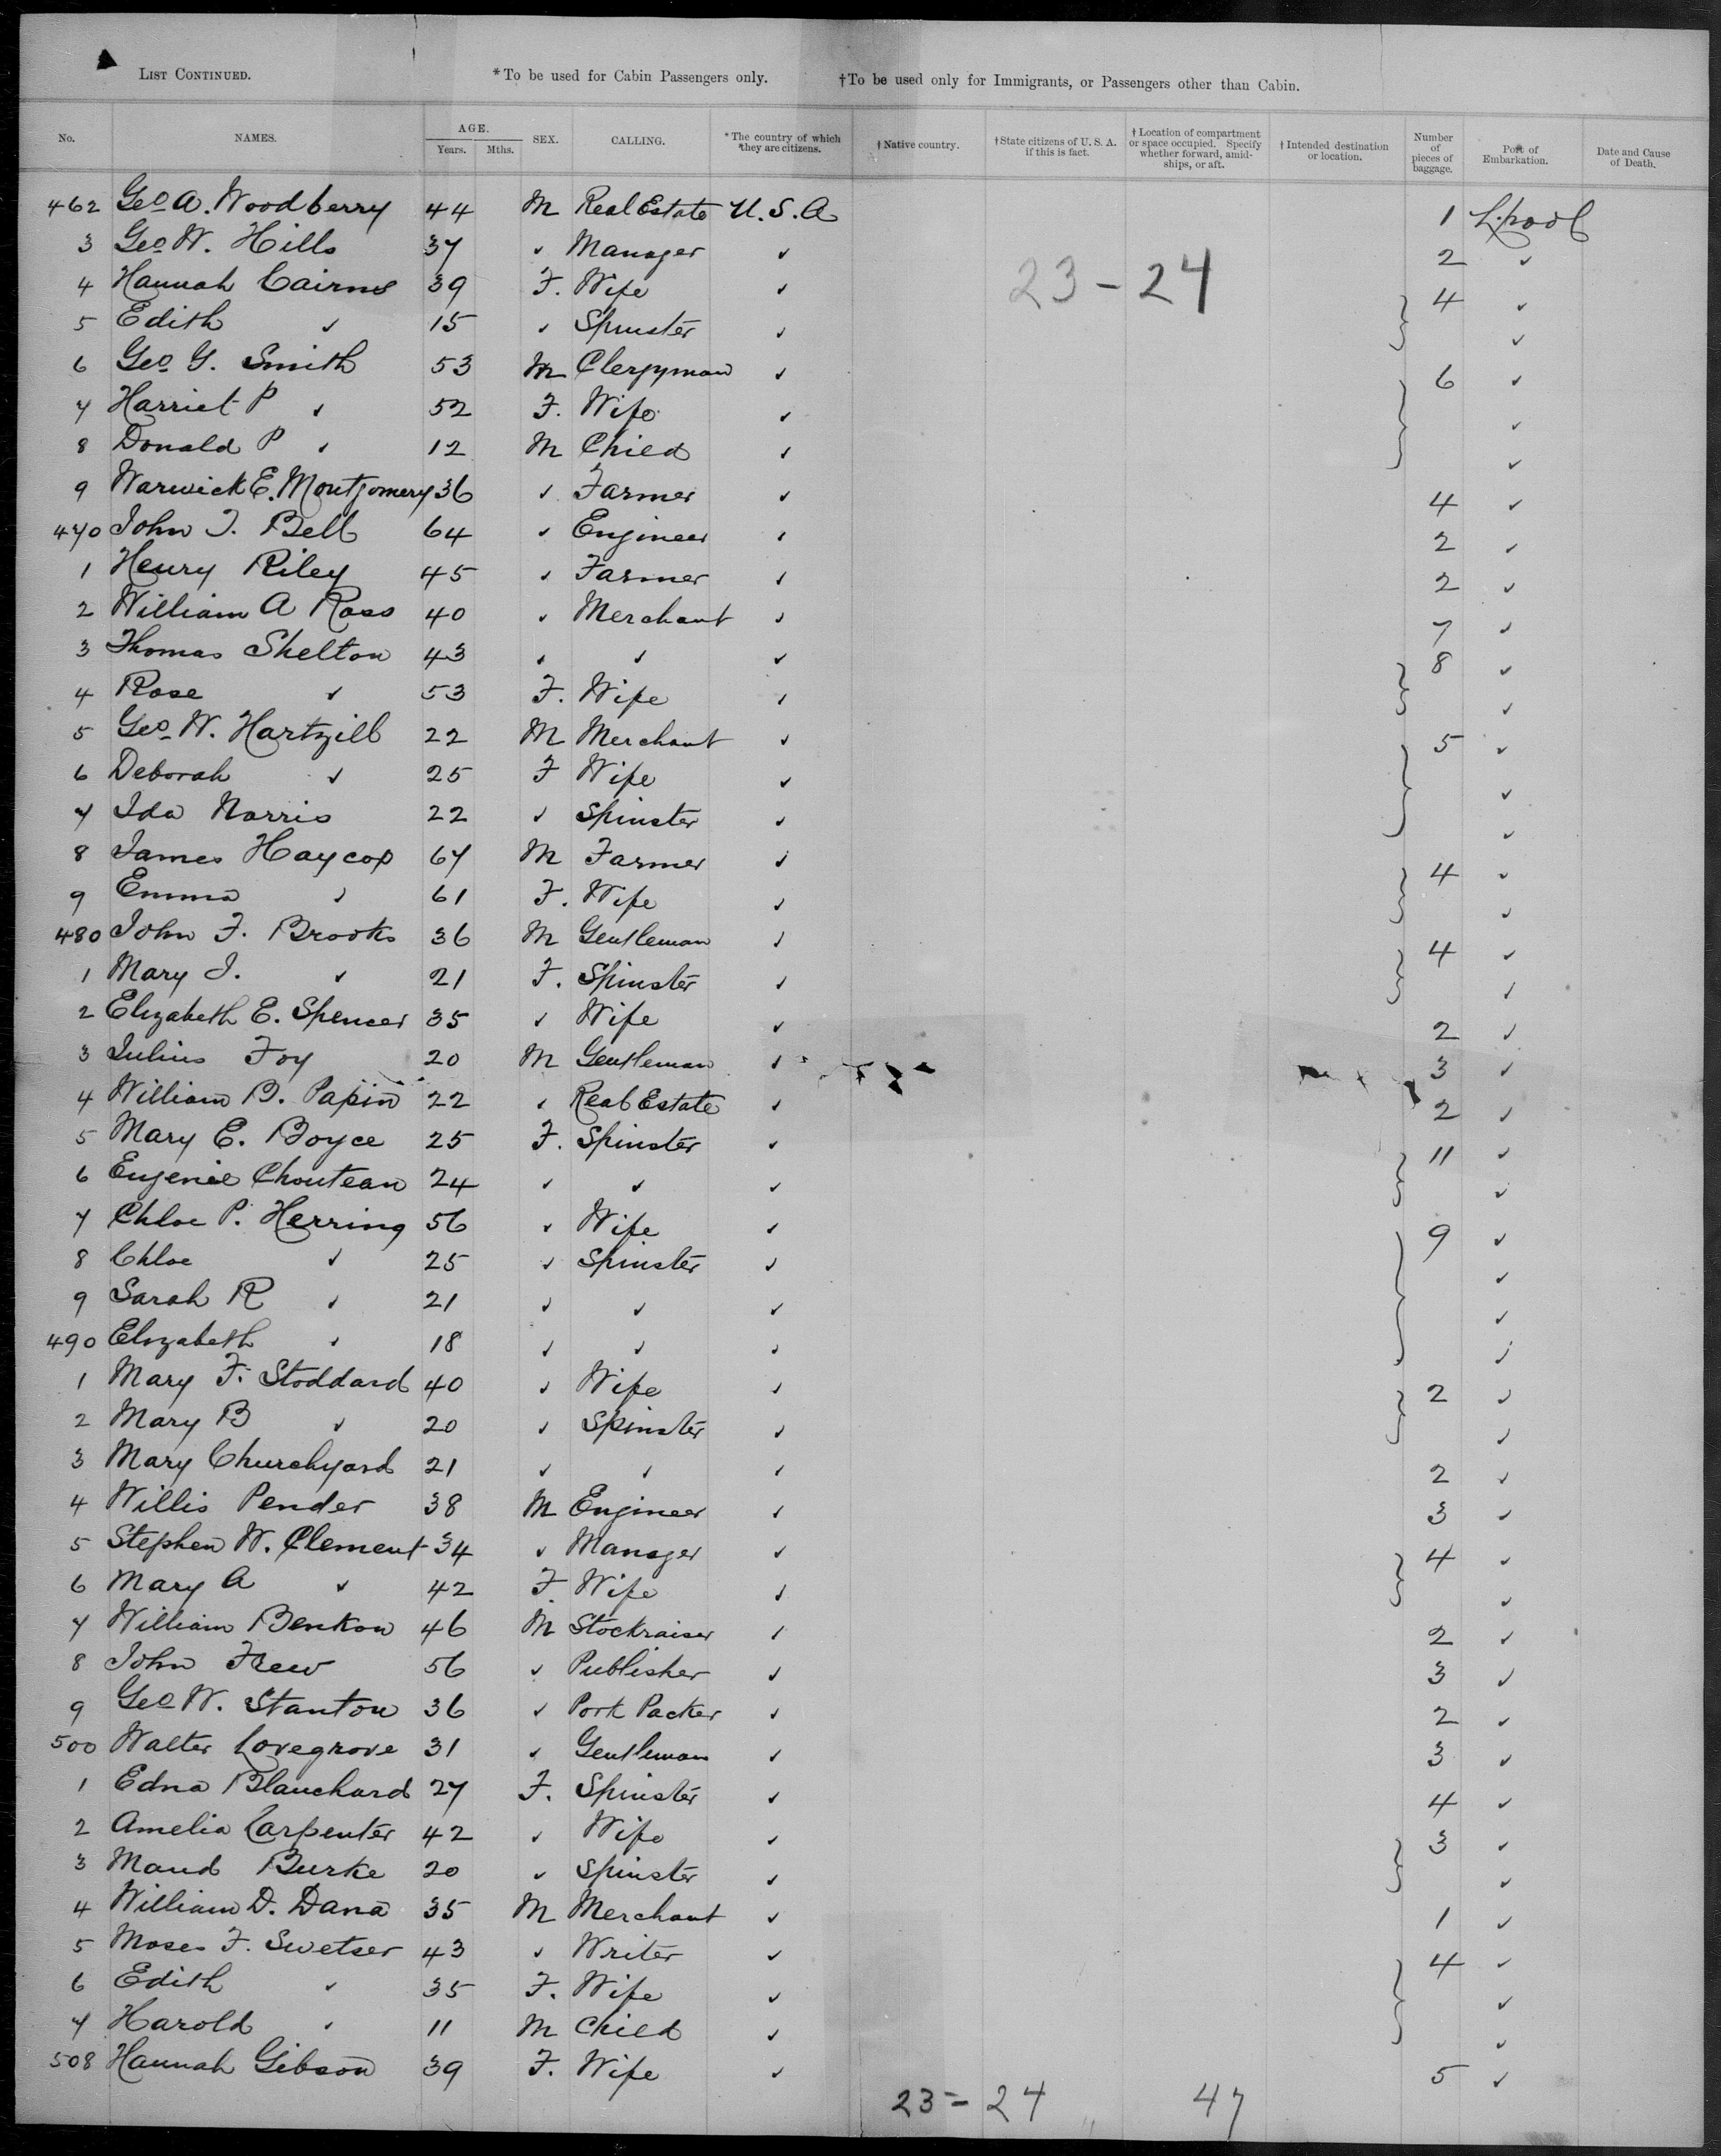 LIST CONTINUED. *To be used for Cabin Passengers only. †To be used only for Immigrants, or Passengers other than Cabin.
No. NAMES. AGE. Years. Mths. SEX. CALLING. *The country of which they are citizens. †Native country. †State citizens of U. S. A. if this is fact. †Location of compartment or space occupied. Specify whether forward, amidships, or aft. †Intended destination or location. Number of pieces of baggage. Port of Embarkation. Date and Cause of Death.
462 Geo A. Woodberry 44 M Real Estate U.S.A 1 L.pool
3 Geo W. Hills 37 ✓ Manager ✓ 2 ✓
23-24
4 Hannah Cairns 39 F. Wife ✓ 4 ✓
5 Edith ✓ 15 ✓ Spinster ✓ ✓
6 Geo G. Smith 53 M Clergyman ✓ 6 ✓
7 Harriet P ✓ 52 F. Wife ✓ ✓
8 Donald P ✓ 12 M Child ✓ ✓
9 Warwick E. Montgomery 36 ✓ Farmer ✓ 4 ✓
470 John T. Bell 64 ✓ Engineer ✓ 2 ✓
1 Henry Riley 45 ✓ Farmer ✓ 2 ✓
2 William A Ross 40 ✓ Merchant ✓ 7 ✓
3 Thomas Shelton 43 ✓ ✓ ✓ 8 ✓
4 Rose ✓ 53 F. Wife ✓ ✓
5 Geo W. Hartzill 22 M Merchant ✓ 5 ✓
6 Deborah ✓ 25 F Wife ✓ ✓
7 Ida Norris 22 ✓ Spinster ✓ ✓
8 James Haycox 67 M Farmer ✓ 4 ✓
9 Emma ✓ 61 F. Wife ✓ ✓
480 John F. Brooks 36 M Gentleman ✓ 4 ✓
1 Mary J. ✓ 21 F. Spinster ✓ ✓
2 Elizabeth E. Spencer 35 ✓ Wife ✓ 2 ✓
3 Julius Foy 20 M Gentleman ✓ 3 ✓
4 William B. Papin 22 ✓ Real Estate ✓ 2 ✓
5 Mary E. Boyce 25 F. Spinster ✓ 11 ✓
6 Eugenie Chouteau 24 ✓ ✓ ✓ ✓
7 Chloe P. Herring 56 ✓ Wife ✓ 9 ✓
8 Chloe ✓ 25 ✓ Spinster ✓ ✓
9 Sarah R ✓ 21 ✓ ✓ ✓ ✓
490 Elizabeth ✓ 18 ✓ ✓ ✓ ✓
1 Mary F. Stoddard 40 ✓ Wife ✓ 2 ✓
2 Mary B ✓ 20 ✓ Spinster ✓ ✓
3 Mary Churchyard 21 ✓ ✓ ✓ 2 ✓
4 Willis Pender 38 M Engineer ✓ 3 ✓
5 Stephen W. Clement 34 ✓ Manager ✓ 4 ✓
6 Mary A ✓ 42 F Wife ✓ ✓
7 William Benkow 46 M Stockraiser ✓ 2 ✓
8 John Frew 56 ✓ Publisher ✓ 3 ✓
9 Geo W. Stanton 36 ✓ Pork Packer ✓ 2 ✓
500 Walter Lovegrove 31 ✓ Gentleman ✓ 3 ✓
1 Edna Blanchard 27 F. Spinster ✓ 4 ✓
2 Amelia Carpenter 42 ✓ Wife ✓ 3 ✓
3 Maud Burke 20 ✓ Spinster ✓ ✓
4 William D. Dana 35 M Merchant ✓ 1 ✓
5 Moses F. Swetser 43 ✓ Writer ✓ 4 ✓
6 Edith ✓ 35 F. Wife ✓ ✓
7 Harold ✓ 11 M Child ✓ ✓
508 Hannah Gibson 39 F. Wife ✓ 5 ✓
23-24 47